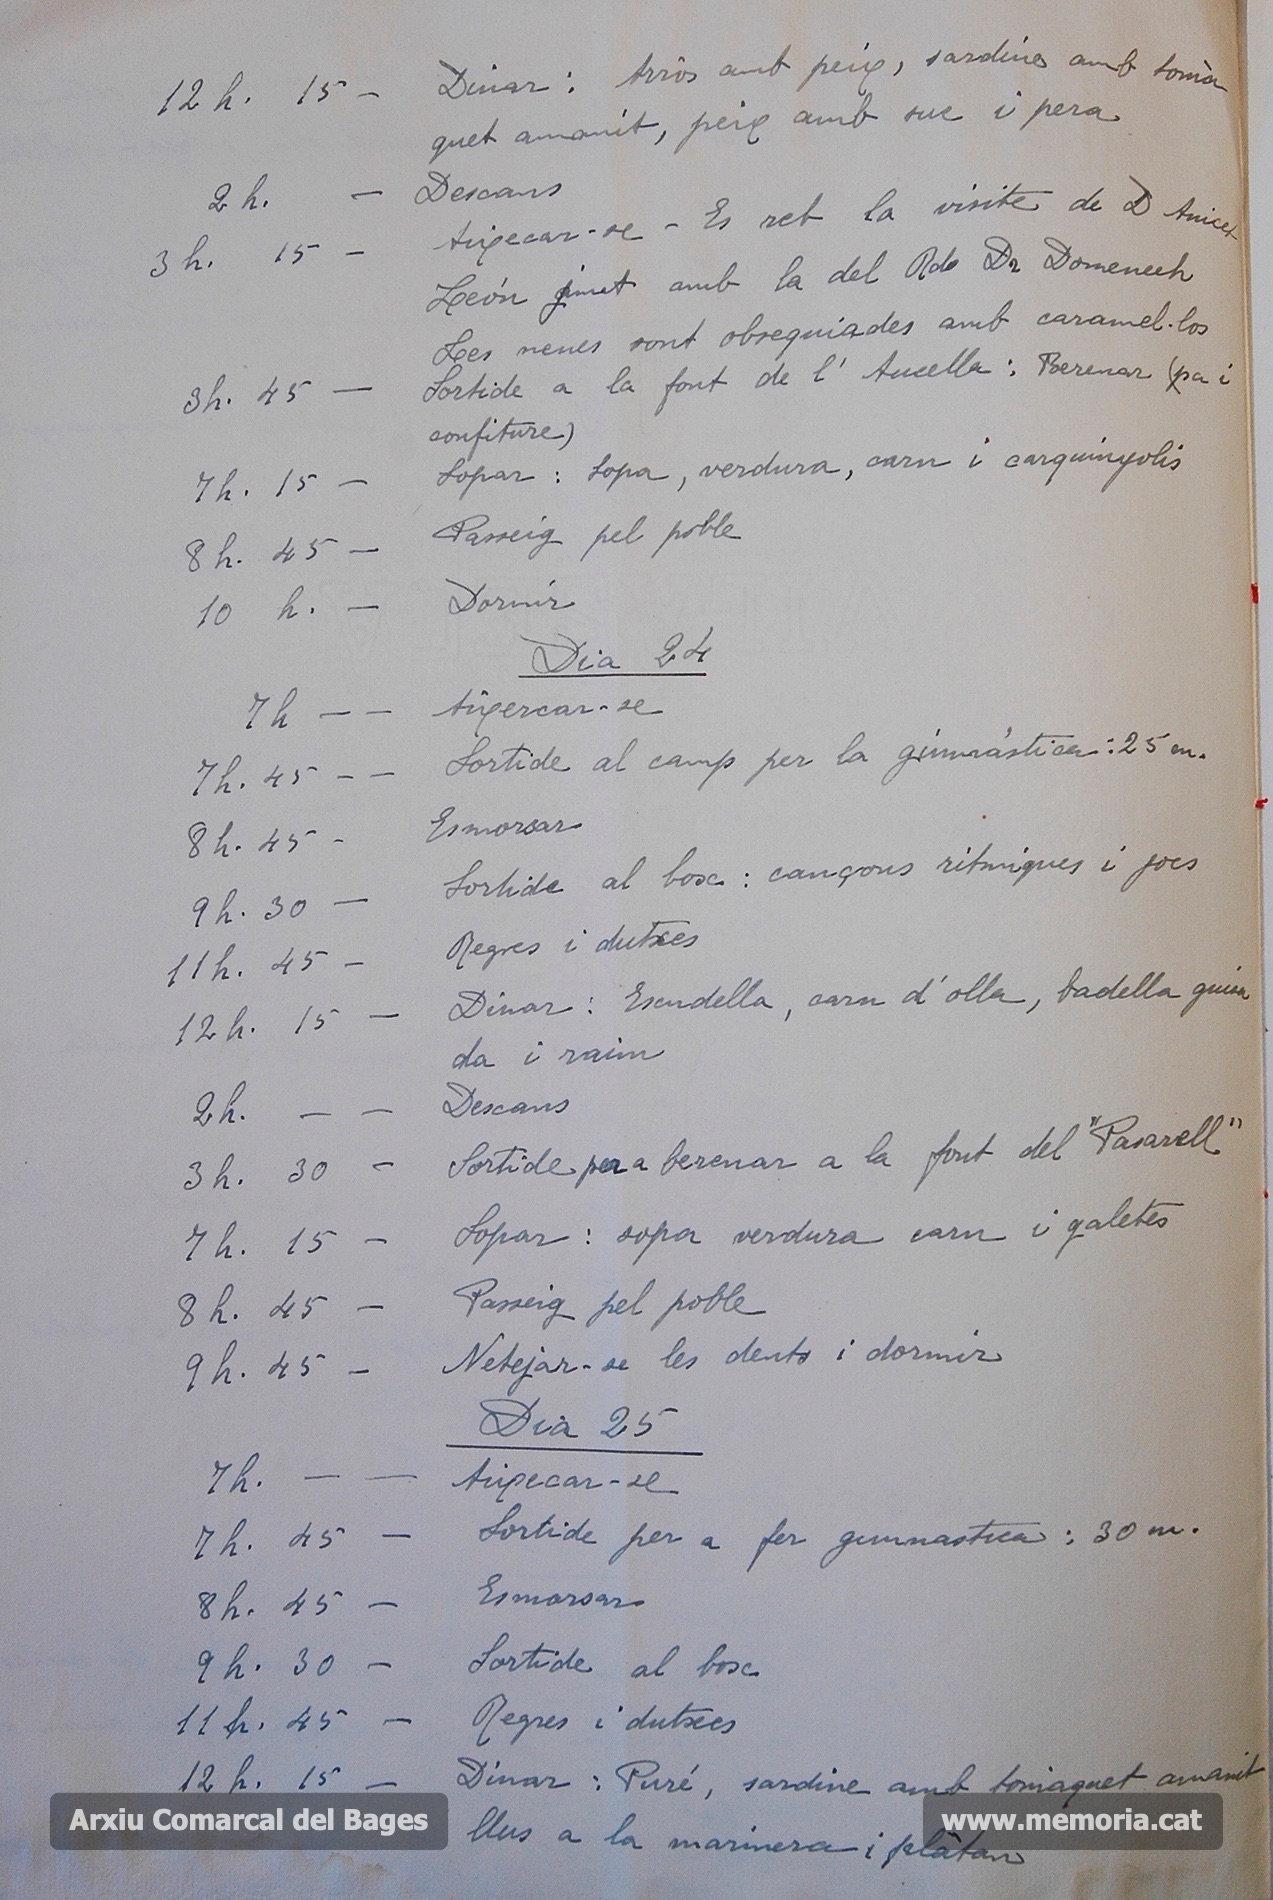 12 h. 15 — Dinar : Arròs amb peig, sardines amb tomà
quet amanit, peig amb suc i pera
2 h. — Descans
3 h. 15 — Aigecar-se - Es reb la visite de D Anicet
León junt amb la del Rdo Dr Domenech
Les nenes sont obsequiades amb caramel·los
3h. 45 — Sortide a la font de l' Aucella : Berenar (pa i
confiture)
7h. 15 — Sopar : Sopa, verdura, carn i carquinyolis
8h. 45 — Passeig pel poble
10 h. — Dormir
Dia 24
7h — — Aigercar-se
7h. 45 — — Sortide al camp per la gimnástica : 25 m.
8h. 45 - Esmorsar
9h. 30 — Sortide al bosc : cançons ritmiques i jocs
11h. 45 — Regres i dutxes
12h. 15 — Dinar : Escudella, carn d'olla, badella guisa
da i raim
2h. — — Descans
3h. 30 — Sortide per a berenar a la font del "Pasarell"
7h. 15 — Sopar : sopa verdura carn i galetes
8h. 45 — Passeig pel poble
9h. 45 — Netejar-se les dents i dormir
Dia 25
7h. — — Aigecar-se
7h. 45 — Sortide per a fer gimnastica : 30 m.
8h. 45 — Esmorsar
9h. 30 — Sortide al bosc
11h. 45 — Regres i dutxes
12h. 15 — Dinar : Puré, sardine amb tomaquet amanit
llus a la marinera i plàtan
Arxiu Comarcal del Bages
www.memoria.cat